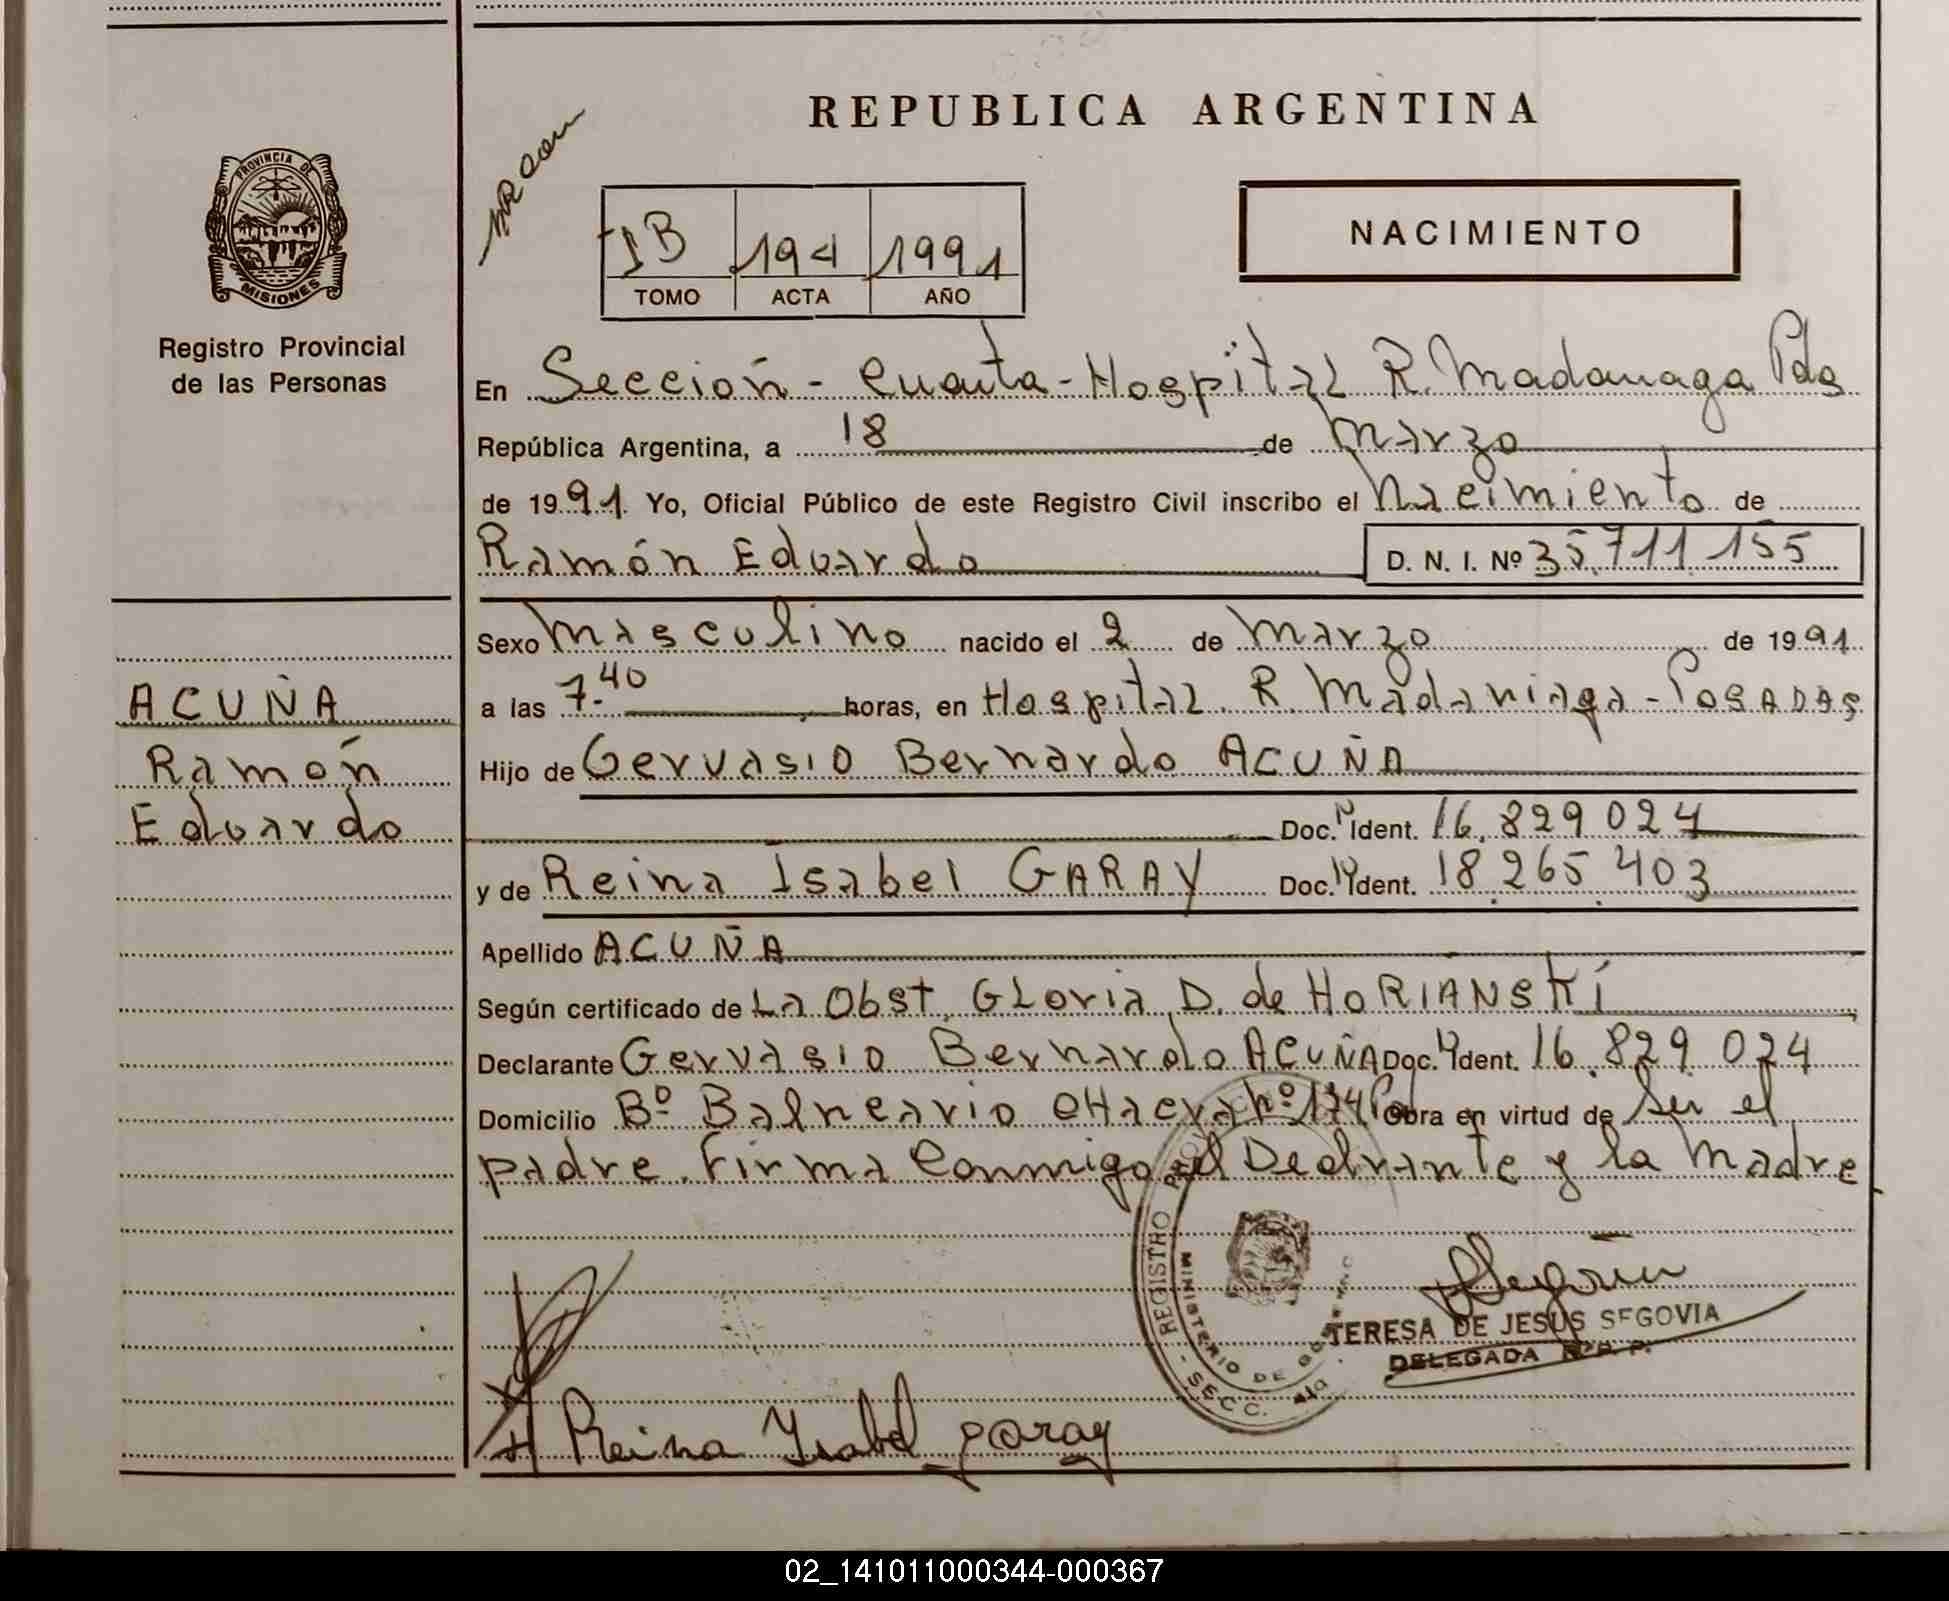 REPUBLICA ARGENTINA
PROVINCIA DE MISIONES
Registro Provincial
de las Personas
1B 194 1991
TOMO ACTA AÑO
NACIMIENTO
En Sección - Cuarta - Hospital R. Madariaga Pdas
República Argentina, a 18 de Marzo
de 1991 Yo, Oficial Público de este Registro Civil inscribo el Nacimiento de
Ramón Eduardo D. N. I. Nº 35.711.155
Sexo Masculino nacido el 2 de Marzo de 1991
a las 7.40 horas, en Hospital R. Madariaga - POSADAS
Hijo de Gervasio Bernardo ACUÑA
Doc. Ident. 16.829.024
y de Reina Isabel GARAY Doc. Ident. 18.265.403
Apellido ACUÑA
Según certificado de La Obst. Gloria D. de HORIANSKI
Declarante Gervasio Bernardo ACUÑA Doc. Ident. 16.829.024
Domicilio Bº Balneario Nº 174 Obra en virtud de Ser el
padre. Firma Conmigo el Declarante y la Madre
ACUÑA
Ramón
Eduardo
REGISTRO
MINISTERIO DE
SECC. 4ta
TERESA DE JESUS SEGOVIA
DELEGADA R. P. P.
Reina Isabel garay
02_141011000344-000367